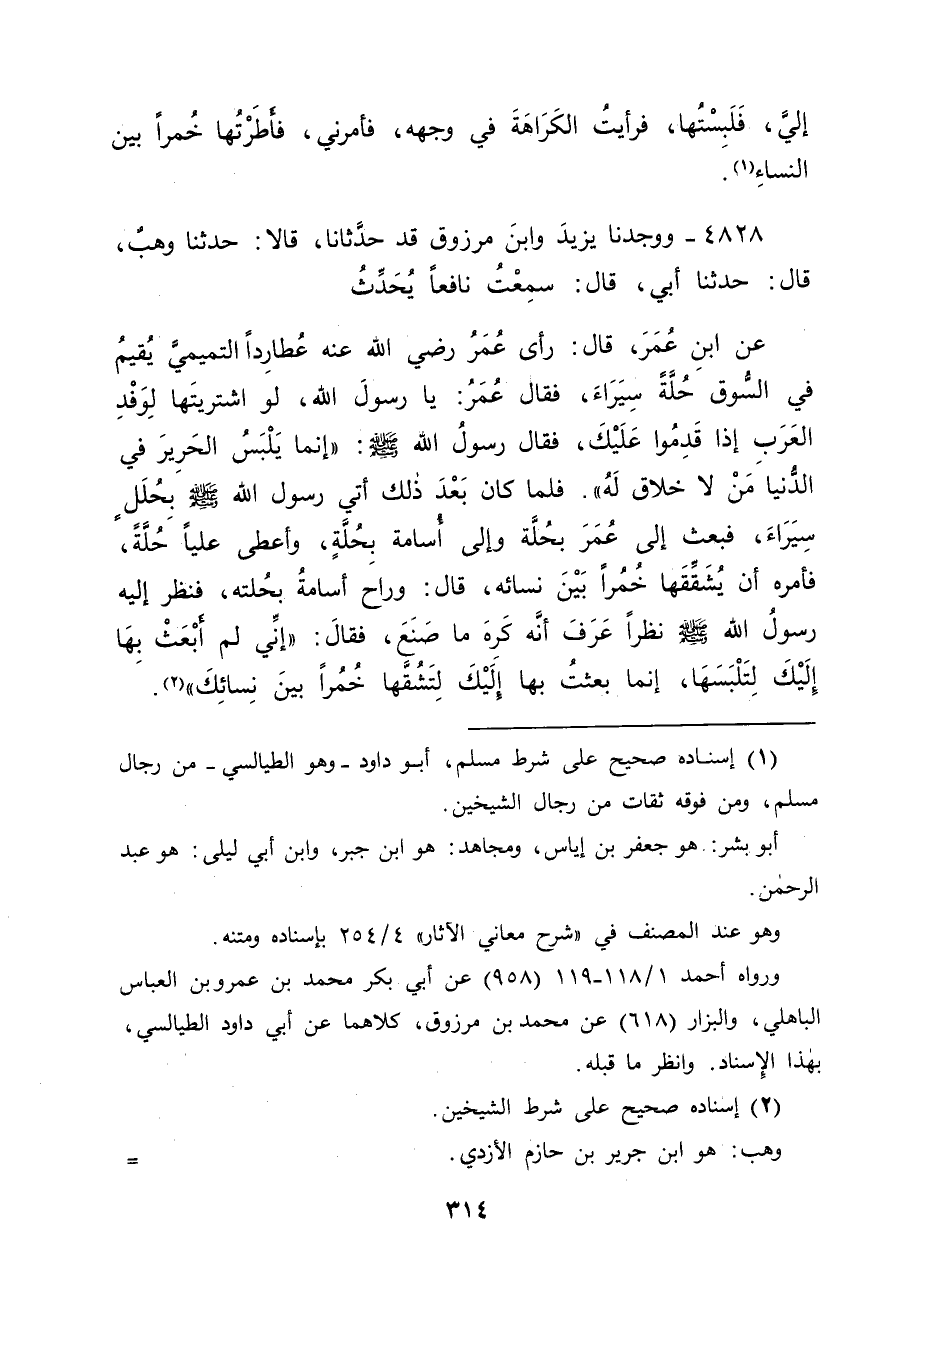 إليَّ، فَلَبِسْتُها، فرأيتُ الكَرَاهَةَ في وجهه، فأمرني، فأَطَرْتُها خُمراً بين
النساءِ(١).
٤٨٢٨ ـ ووجدنا يزيدَ وابنَ مرزوق قد حدَّثانا، قالا: حدثنا وهبٌ،
قال: حدثنا أبي، قال: سمِعْتُ نافعاً يُحَدِّثُ
عن ابنِ عُمَرَ، قال: رأى عُمَرُ رضي الله عنه عُطارِداً التميميَّ يُقيمُ
في السُّوق حُلَّةً سِيَرَاءَ، فقال عُمَرُ: يا رسولَ الله، لو اشتريتَها لِوَفْدِ
العَرَبِ إذا قَدِمُوا عَلَيْكَ، فقال رسولُ الله ﷺ: «إنما يَلْبَسُ الحَرِيرَ في
الدُّنيا مَنْ لا خلاق لَهُ». فلما كان بَعْدَ ذٰلك أتي رسول الله ﷺ بِحُلَلٍ
سِيَرَاءَ، فبعث إلى عُمَرَ بحُلَّة وإلى أُسامة بِحُلَّةٍ، وأعطى علياً حُلَّةً،
فأمره أن يُشَقِّقَها خُمُراً بَيْنَ نسائه، قال: وراح أسامةُ بحُلته، فنظر إليه
رسولُ الله ﷺ نظراً عَرَفَ أنَّه كَرِهَ ما صَنَعَ، فقالَ: «إنِّي لم أَبْعَثْ بِهَا
إِلَيْكَ لِتَلْبَسَهَا، إنما بعثتُ بها إِلَيْكَ لِتَشُقَّها خُمُراً بينَ نِسائِكَ»(٢).
(١) إسناده صحيح على شرط مسلم، أبو داود ـ وهو الطيالسي ـ من رجال
مسلم، ومن فوقه ثقات من رجال الشيخين.
أبو بشر: هو جعفر بن إياس، ومجاهد: هو ابن جبر، وابن أبي ليلى: هو عبد
الرحمٰن.
وهو عند المصنف في «شرح معاني الآثار» ٢٥٤/٤ بإسناده ومتنه.
ورواه أحمد ١١٨/١-١١٩ (٩٥٨) عن أبي بكر محمد بن عمرو بن العباس
الباهلي، والبزار (٦١٨) عن محمد بن مرزوق، كلاهما عن أبي داود الطيالسي،
بهٰذا الإسناد. وانظر ما قبله.
(٢) إسناده صحيح على شرط الشيخين.
وهب: هو ابن جرير بن حازم الأزدي. =
٣١٤